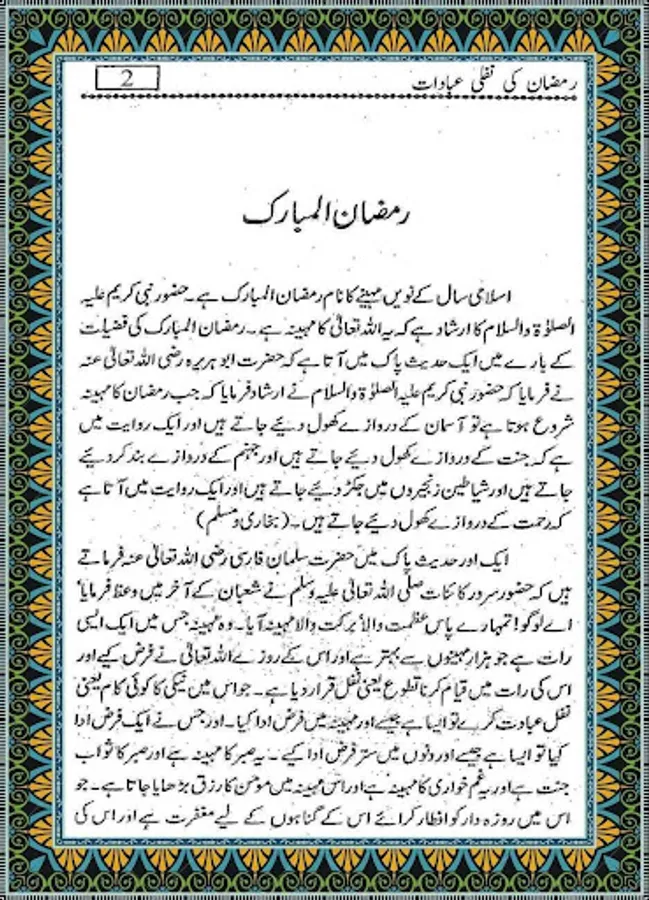 رمضان کی نفلی عبادات
2
رمضان المبارک
اسلامی سال کے نویں مہینے کا نام رمضان المبارک ہے۔ حضور نبی کریم علیہ
الصلوٰۃ والسلام کا ارشاد ہے کہ یہ اللہ تعالیٰ کا مہینہ ہے۔ رمضان المبارک کی فضیلت
کے بارے میں ایک حدیث پاک میں آتا ہے کہ حضرت ابوہریرہ رضی اللہ تعالیٰ عنہ
نے فرمایا کہ حضور نبی کریم علیہ الصلوٰۃ والسلام نے ارشاد فرمایا کہ جب رمضان کا مہینہ
شروع ہوتا ہے تو آسمان کے دروازے کھول دیئے جاتے ہیں اور ایک روایت میں
ہے کہ جنت کے دروازے کھول دیئے جاتے ہیں اور جہنم کے دروازے بند کر دیئے
جاتے ہیں اور شیاطین زنجیروں میں جکڑ دیئے جاتے ہیں اور ایک روایت میں آتا ہے
کہ رحمت کے دروازے کھول دیئے جاتے ہیں۔ (بخاری و مسلم)
ایک اور حدیث پاک میں حضرت سلمان فارسی رضی اللہ تعالیٰ عنہ فرماتے
ہیں کہ حضور سرور کائنات صلی اللہ تعالیٰ علیہ وسلم نے شعبان کے آخر میں وعظ فرمایا
اے لوگو! تمہارے پاس عظمت والا' برکت والا مہینہ آیا۔ وہ مہینہ جس میں ایک ایسی
رات ہے جو ہزار مہینوں سے بہتر ہے اور اس کے روزے اللہ تعالیٰ نے فرض کیے اور
اس کی رات میں قیام کرنا تطوع یعنی نفل قرار دیا ہے۔ جو اس میں نیکی کا کوئی کام یعنی
نفل عبادت کرے تو ایسا ہے جیسے اور مہینہ میں فرض ادا کیا۔ اور جس نے ایک فرض ادا
کیا تو ایسا ہے جیسے اور دنوں میں ستر فرض ادا کیے۔ یہ صبر کا مہینہ ہے اور صبر کا ثواب
جنت ہے اور یہ غم خواری کا مہینہ ہے اور اس مہینہ میں مومن کا رزق بڑھایا جاتا ہے۔ جو
اس میں روزہ دار کو افطار کرائے اس کے گناہوں کے لیے مغفرت ہے اور اس کی